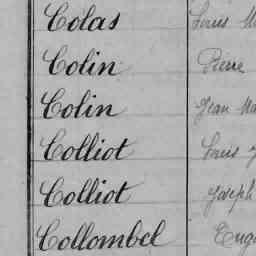 Colas Louis
Colin Pierre
Colin Jean
Colliot Louis
Colliot Joseph
Collombel